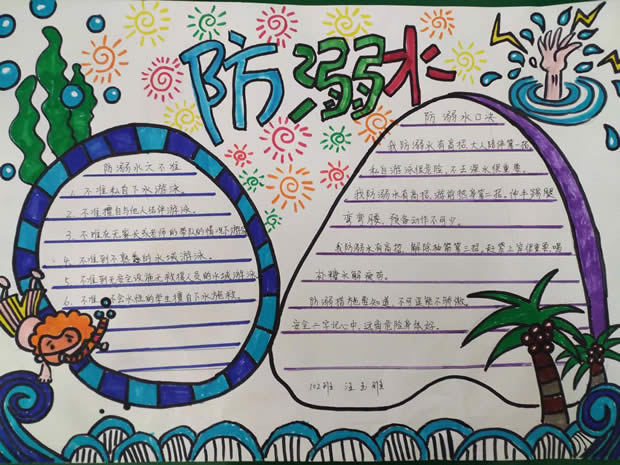 防溺水
防溺水六不准
1、不准私自下水游泳。
2、不准擅自与他人结伴游泳。
3、不准在无家长或老师的带队的情况下游泳
4、不准到不熟悉的水域游泳。
5、不准到无安全设施无救援人员的水域游泳
6、不准不会水性的学生擅自下水施救。
防溺水口诀
我防溺水有高招,大人陪伴第一招。
私自游泳很危险,不去深水很重要。
我防溺水有高招,游前热身第二招,伸手踢腿
弯弯腰,预备动作不可少。
我防溺水有高招,解除抽筋第三招,赶紧上岸很重要,喝
杯糖水解疲劳。
防溺措施要知道,不可逞能不骄傲。
安全二字记心中,远离危险身体好。
102班 汪